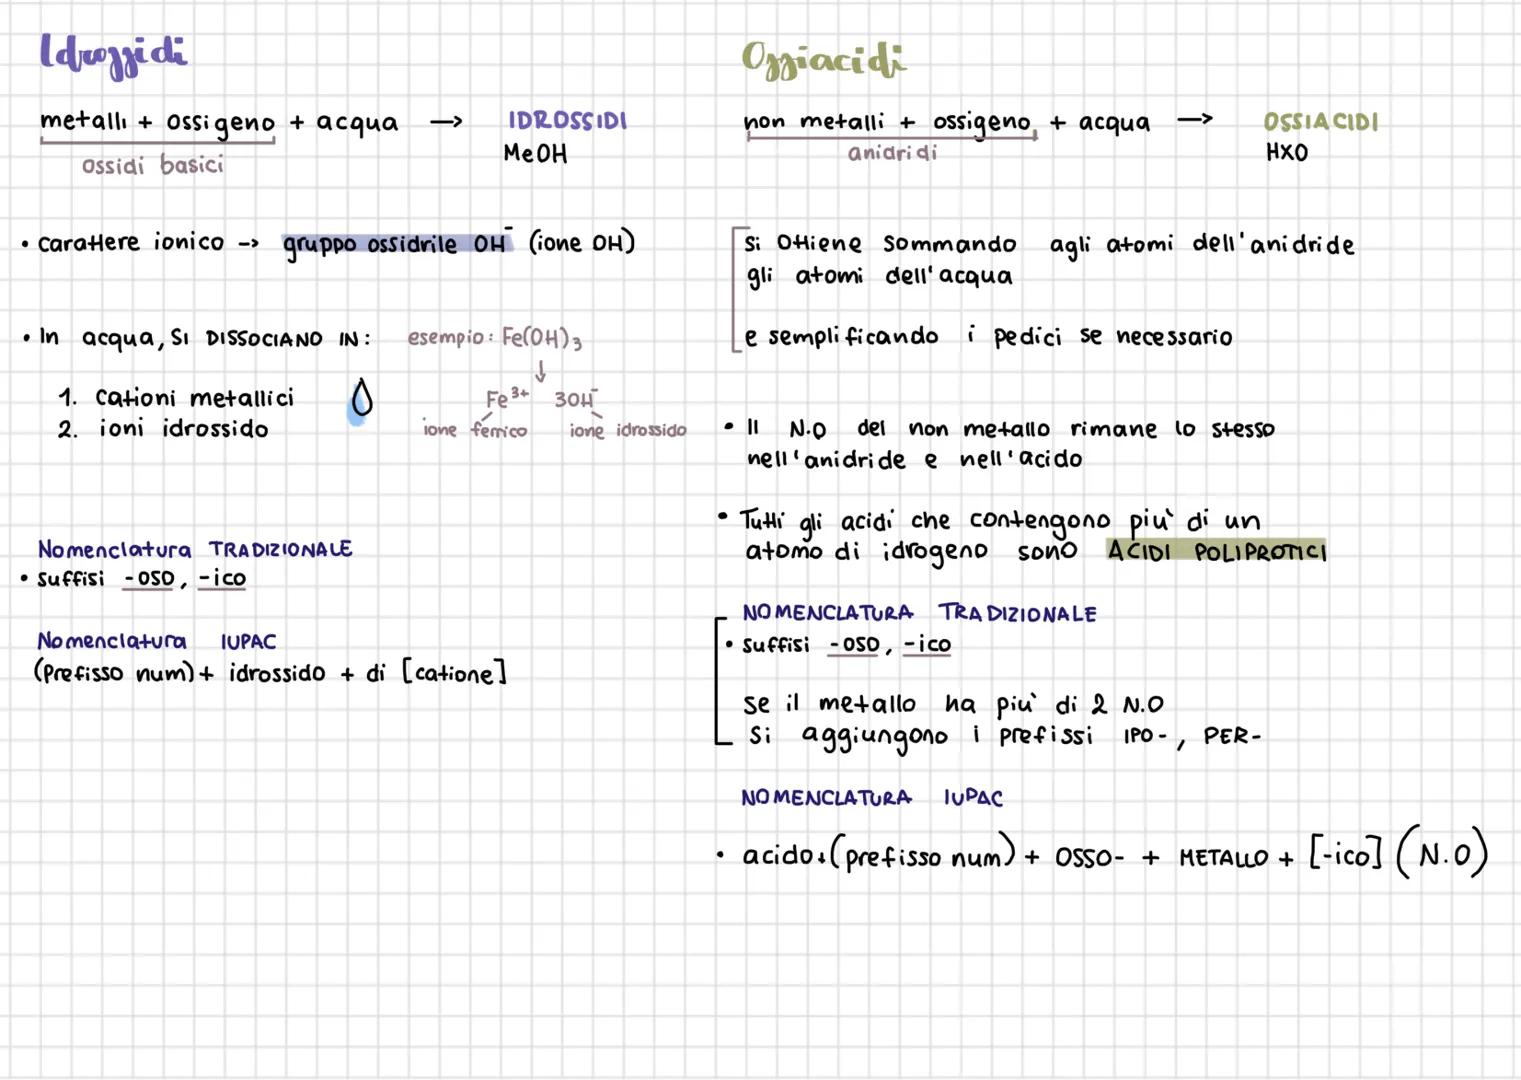 Idrossidi
metalli + ossigeno + acqua → IDROSSIDI
ossidi basici
MeOH
• carattere ionico -> gruppo ossidrile OH⁻ (ione OH)
• In acqua, SI DISSOCIANO IN:
1. cationi metallici
2. ioni idrossido
esempio: Fe(OH)₃
↓
Fe³⁺ 3OH⁻
ione ferrico ione idrossido
Nomenclatura TRADIZIONALE
• suffisi -oso, -ico
Nomenclatura IUPAC
(Prefisso num)+ idrossido + di [catione]
Ossiacidi
non metalli + ossigeno + acqua → OSSIACIDI
anidridi
HXO
si ottiene sommando agli atomi dell'anidride
gli atomi dell'acqua
e semplificando i pedici se necessario
• Il N.O del non metallo rimane lo stesso
nell'anidride e nell'acido
• Tutti gli acidi che contengono più di un
atomo di idrogeno sono ACIDI POLIPROTICI
NOMENCLATURA TRADIZIONALE
• suffisi -oso, -ico
se il metallo ha più di 2 N.O
si aggiungono i prefissi IPO-, PER-
NOMENCLATURA IUPAC
• acido+(prefisso num) + OSSO- + METALLO + [-ico] (N.O)